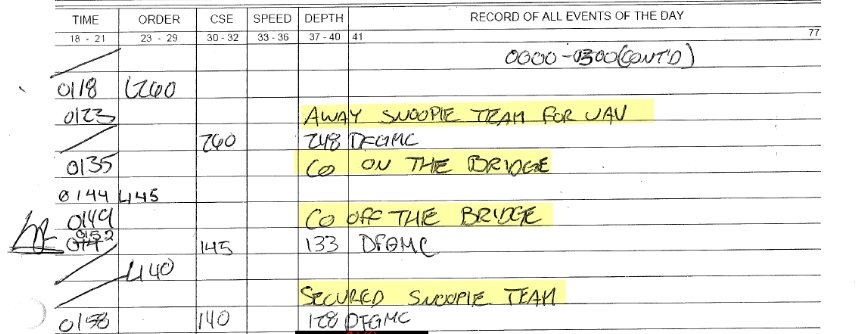 TIME ORDER CSE SPEED DEPTH RECORD OF ALL EVENTS OF THE DAY
18 - 21 23 - 29 30 - 32 33 - 36 37 - 40 41 77
0000-0300 (CONT'D)
0118 L260
0123 AWAY SNOOPIE TEAM FOR UAV
260 248 DFGMC
0135 CO ON THE BRIDGE
0144 L145
0149 CO OFF THE BRIDGE
0152 145 133 DFGMC
L140
SECURED SNOOPIE TEAM
0158 140 128 DFGMC